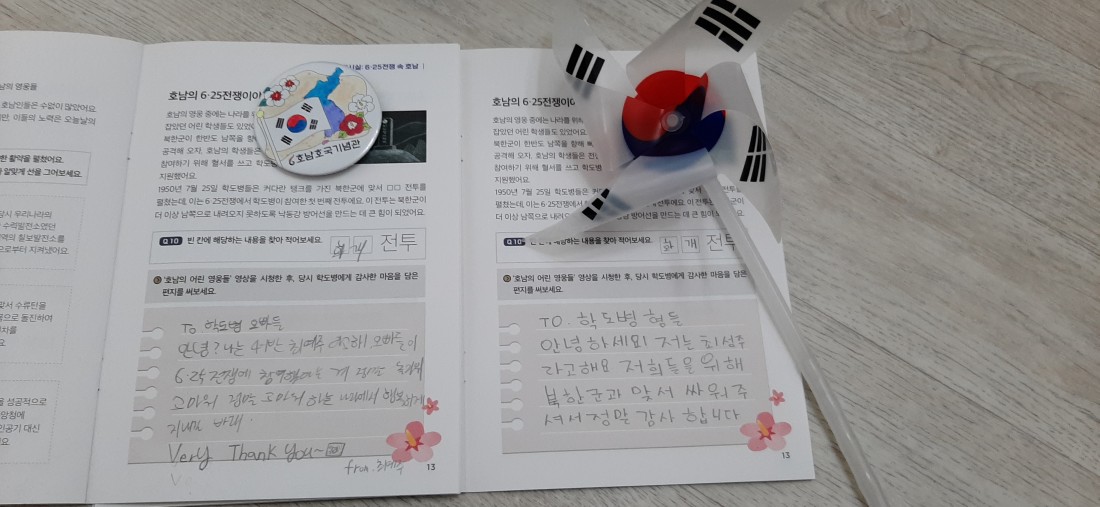 남의 영웅들
호남인들은 수없이 많았어요.
지만, 이들의 노력은 오늘날의
한 활약을 펼쳤어요.
알맞게 선을 그어보세요.
당시 우리나라의
수력발전소였던
역의 칠보발전소를
으로부터 지켜냈어요.
맞서 수류탄을
으로 돌진하여
차를
요.
을 성공적으로
암참에
인공기 대신
요.
실: 6·25전쟁 속 호남
호남의 6·25전쟁이야
호남의 영웅 중에는 나라를 위해
잡았던 어린 학생들도 있었어요.
북한군이 한반도 남쪽을 향해
공격해 오자, 호남의 학생들은 전
참여하기 위해 혈서를 쓰고 학도
지원했어요.
1950년 7월 25일 학도병들은 커다란 탱크를 가진 북한군에 맞서 □□ 전투를
펼쳤는데, 이는 6·25전쟁에서 학도병이 참여한 첫 번째 전투예요. 이 전투는 북한군이
더 이상 남쪽으로 내려오지 못하도록 낙동강 방어선을 만드는 데 큰 힘이 되었어요.
Q 10 빈 칸에 해당하는 내용을 찾아 적어보세요. 화 개 전투
'호남의 어린 영웅들' 영상을 시청한 후, 당시 학도병에게 감사한 마음을 담은
편지를 써보세요.
To 학도병 오빠들
안녕? 나는 오빠들이
6·25 전쟁에
고마워 정말 고마워 하늘 나라에서 행복하게
지내길 바래.
Very Thank You~
from.
13
호남호국기념관
호남의 6·25전쟁이야
호남의 영웅 중에는 나라를 위해
잡았던 어린 학생들도 있었어요.
북한군이 한반도 남쪽을 향해
공격해 오자, 호남의 학생들은 전
참여하기 위해 혈서를 쓰고 학도병
지원했어요.
1950년 7월 25일 학도병들은 커다
펼쳤는데, 이는 6·25전쟁에서 학도병이 참여한 첫 번째 전투예요. 이 전투
더 이상 남쪽으로 내려오지 못하도록 낙동강 방어선을 만드는 데 큰 힘이 되었어요.
Q 10 빈 칸에 해당하는 내용을 찾아 적어보세요. 화 개 전투
'호남의 어린 영웅들' 영상을 시청한 후, 당시 학도병에게 감사한 마음을 담은
편지를 써보세요.
TO. 학도병 형들
안녕하세요! 저는 최성주
라고해요 저희들을 위해
북한군과 맞서 싸워주
셔서 정말 감사 합니다
13